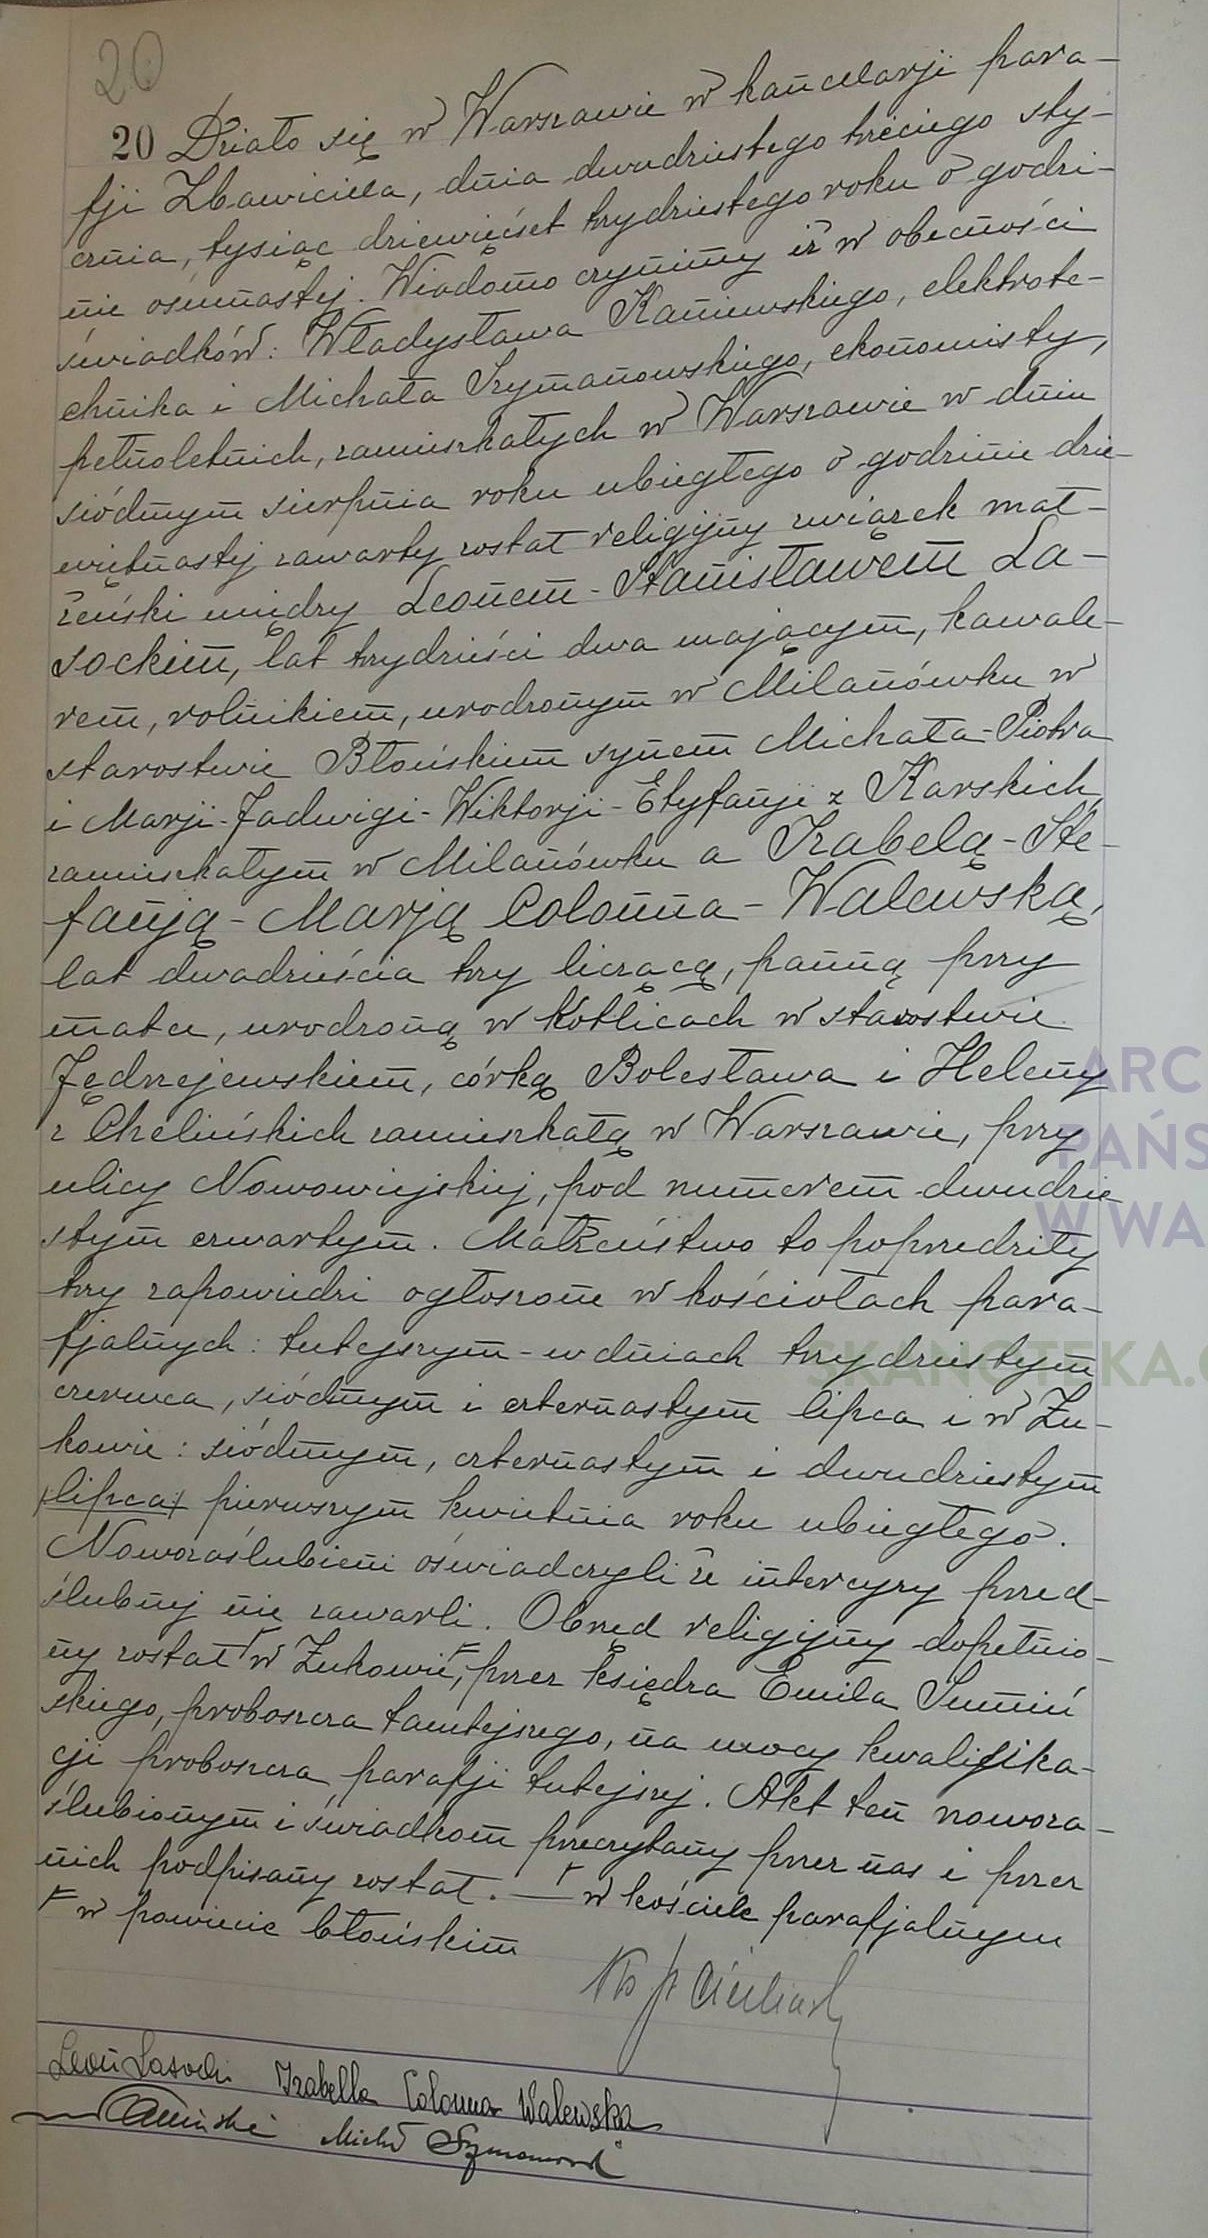 20
20 Działo się w Warszawie w kancelarji para-
fji Zbawiciela, dnia dwudziestego trzeciego sty-
cznia, tysiąc dziewięćset trzydziestego roku o godzi-
nie osiemnastej. Wiadomo czynimy iż w obecności
świadków: Władysława Kaniewskiego, elektrote-
chnika i Michała Szymanowskiego, ekonomisty,
pełnoletnich, zamieszkałych w Warszawie w dniu
siódmym sierpnia roku ubiegłego o godzinie dzie-
więtnastej zawarty został religijny związek mał-
żeński między Leonem-Stanisławem La-
sockim, lat trzydzieści dwa mającym, kawale-
rem, rolnikiem, urodzonym w Milanówku w
starostwie Błońskiem synem Michała-Piotra
i Marji-Jadwigi-Wiktorji-Etyfanji z Karskich,
zamieszkałym w Milanówku a Izabelą-Ste-
fanją-Marją Colonna-Walewską,
lat dwadzieścia trzy liczącą, panną przy
matce, urodzoną w Kotlicach w starostwie
Jędrzejewskiem, córką Bolesława i Heleny
z Chelińskich zamieszkałą w Warszawie, przy
ulicy Nowowiejskiej, pod numerem dwudzie
stym czwartym. Małżeństwo to poprzedziły
trzy zapowiedzi ogłoszone w kościołach para-
fjalnych: tutejszym-w dniach trzydziestym
czerwca, siódmym i czternastym lipca i w Żu-
kowie: siódmym, czternastym i dwudziestym
/lipca/ pierwszym kwietnia roku ubiegłego.
Nowozaślubieni oświadczyli że intercyzy przed-
ślubnej nie zawarli. Obrzęd religijny dopełnio-
ny został w Żukowie, przez księdza Emila
skiego, proboszcza tamtejszego, na mocy kwalifika-
cji proboszcza parafji tutejszej. Akt ten nowoza-
ślubionym i świadkom przeczytany przez nas i przez
nich podpisany został. — w kościele parafjalnym
w powiecie błońskim
Leon Lasocki Izabella Colonna Walewska
Michał
ARC
PAŃS
W WA
SKANOTEKA.